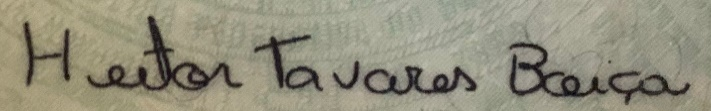 Heitor Tavares Baiça